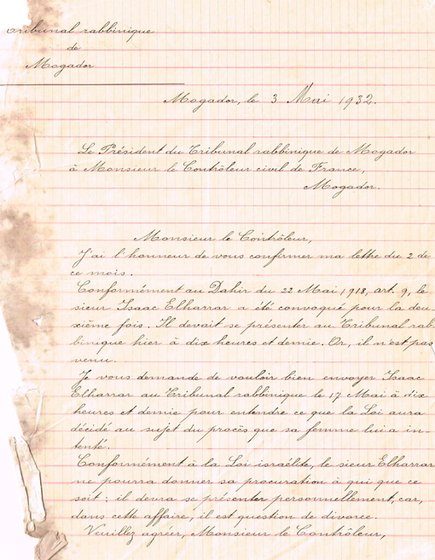 Tribunal rabbinique
de
Mogador
Mogador, le 3 Mai 1932.
Le Président du Tribunal rabbinique de Mogador
à Monsieur le Contrôleur civil de France,
Mogador.
Monsieur le Contrôleur,
J'ai l'honneur de vous confirmer ma lettre du 2 de
ce mois.
Conformément au Dahir du 22 Mai 1918, art. 9, le
sieur Isaac Elharrar a été convoqué pour la deu-
xième fois. Il devait se présenter au Tribunal rab-
binique hier à dix heures et demie. Or, il n'est pas
venu.
Je vous demande de vouloir bien envoyer Isaac
Elharrar au Tribunal rabbinique le 17 Mai à dix
heures et demie pour entendre ce que la Loi aura
décidé au sujet du procès que sa femme lui a in-
tenté.
Conformément à la Loi israélite, le sieur Elharrar
ne pourra donner sa procuration à qui que ce
soit; il devra se présenter personnellement, car,
dans cette affaire, il est question de divorce.
Veuillez agréer, Monsieur le Contrôleur,